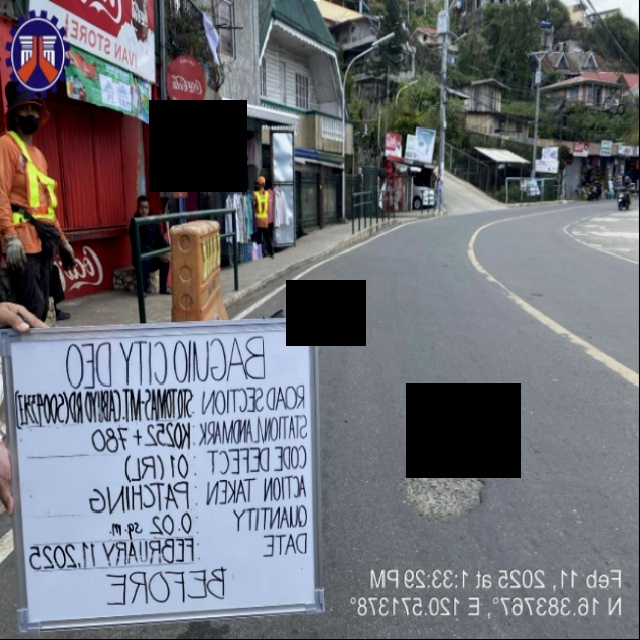 IVAN STORE
Coca-Cola
Coca-Cola
BAGUIO CITY DEO
ROAD SECTION :
STATION/LANDMARK : K0252+780
CODE DEFECT : 01 (RL)
ACTION TAKEN : PATCHING
QUANTITY : 0.02 sq.m.
DATE : FEBRUARY 11, 2025
BEFORE
Feb 11, 2025 at 1:33:29 PM
N 16.383767°, E 120.571378°